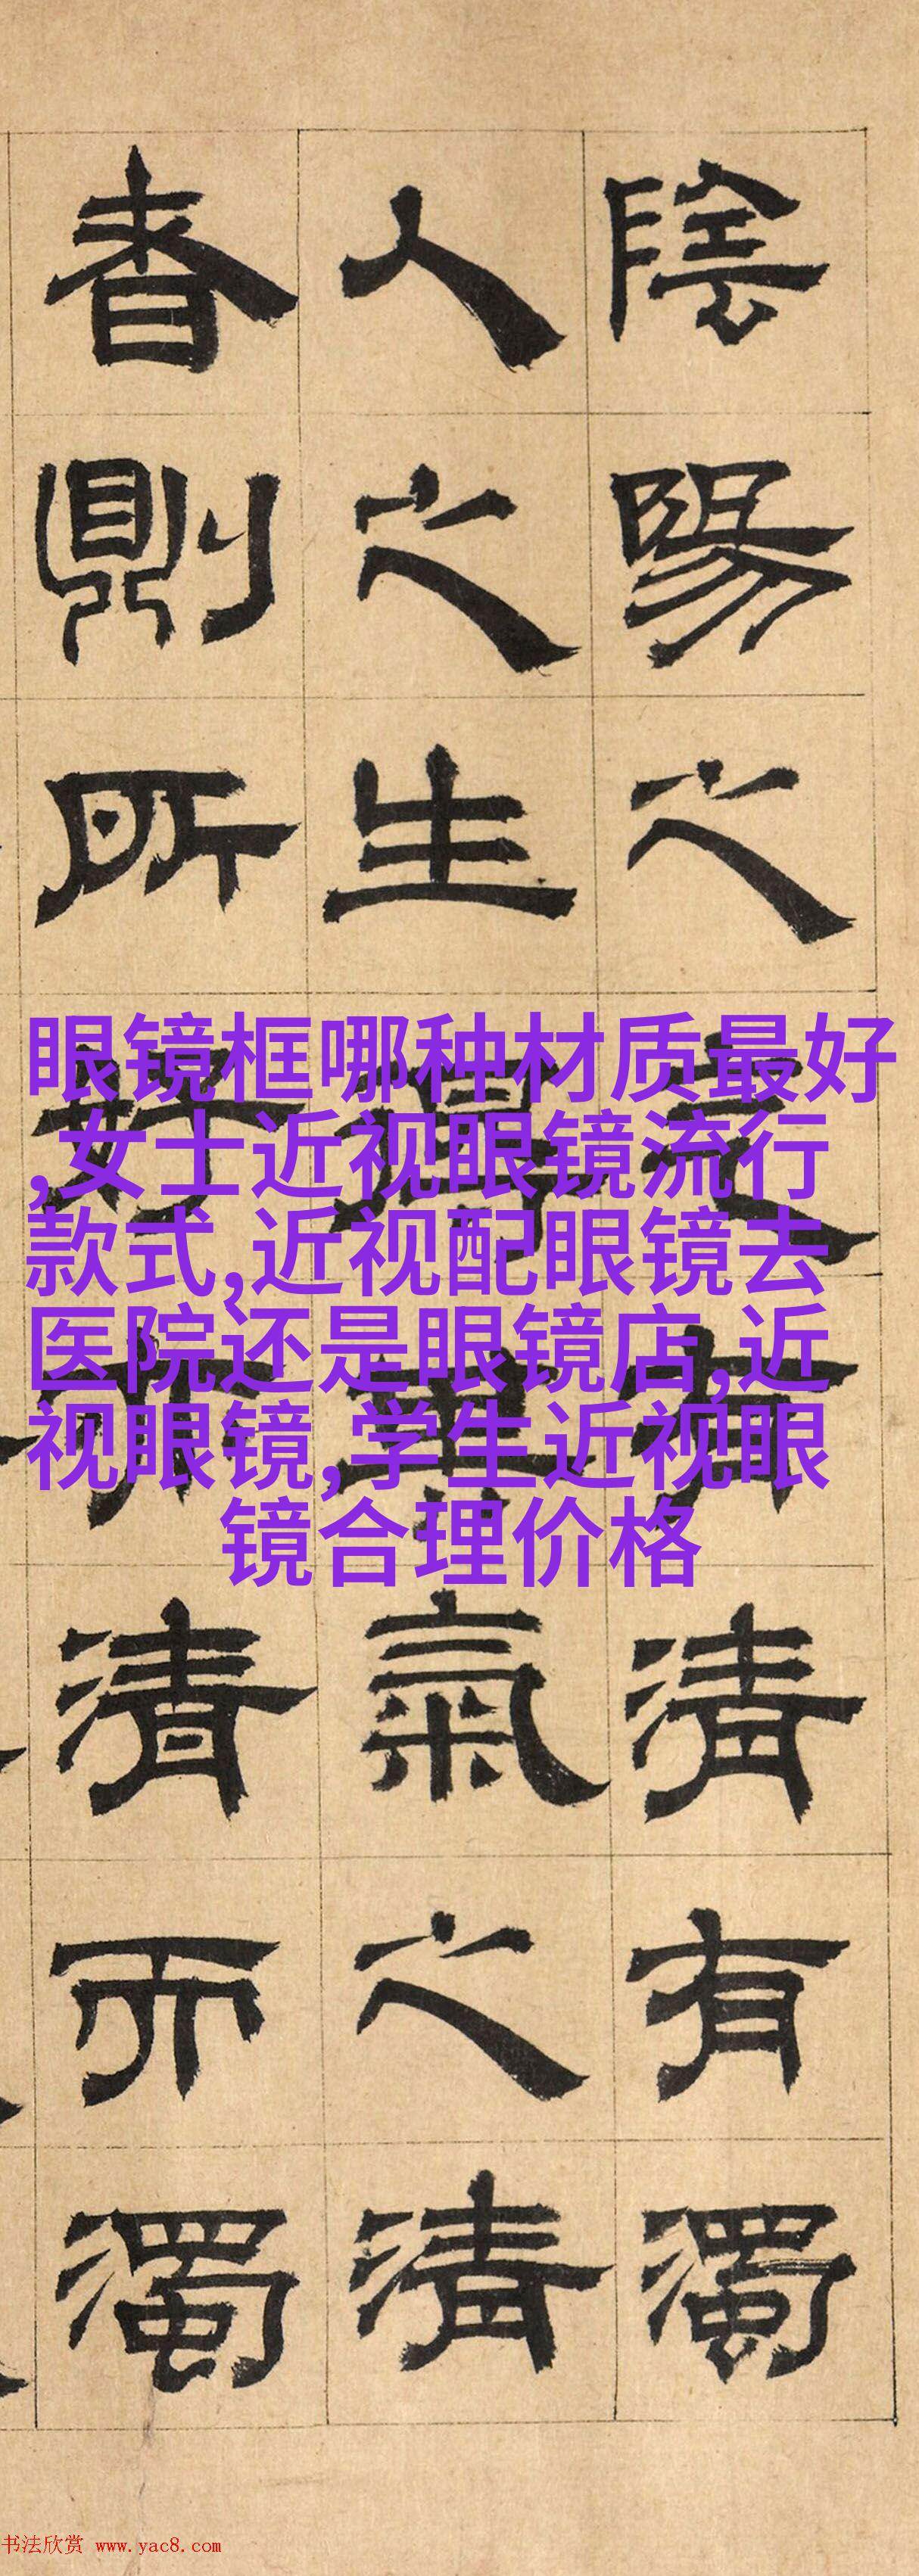 陰陽之有清有濁
人之生得其氣之清
者則所好清而濁
眼镜框哪种材质最好
,女士近视眼镜流行
款式,近视配眼镜去
医院还是眼镜店,近
视眼镜,学生近视眼
镜合理价格
书法欣赏 www.yac8.com